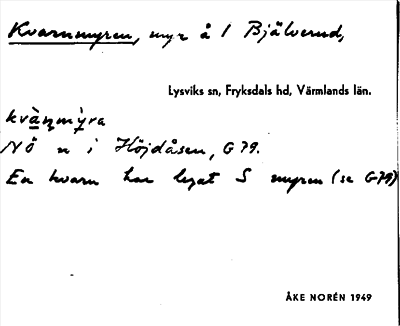 Kvarnmyren, myr å 1 Bjälverud,
Lysviks sn, Fryksdals hd, Värmlands län.
kvàɳmỳra
NÖ n i Höjdåsen, G 79.
En kvarn har legat S myren (se G79)
ÅKE NORÉN 1949